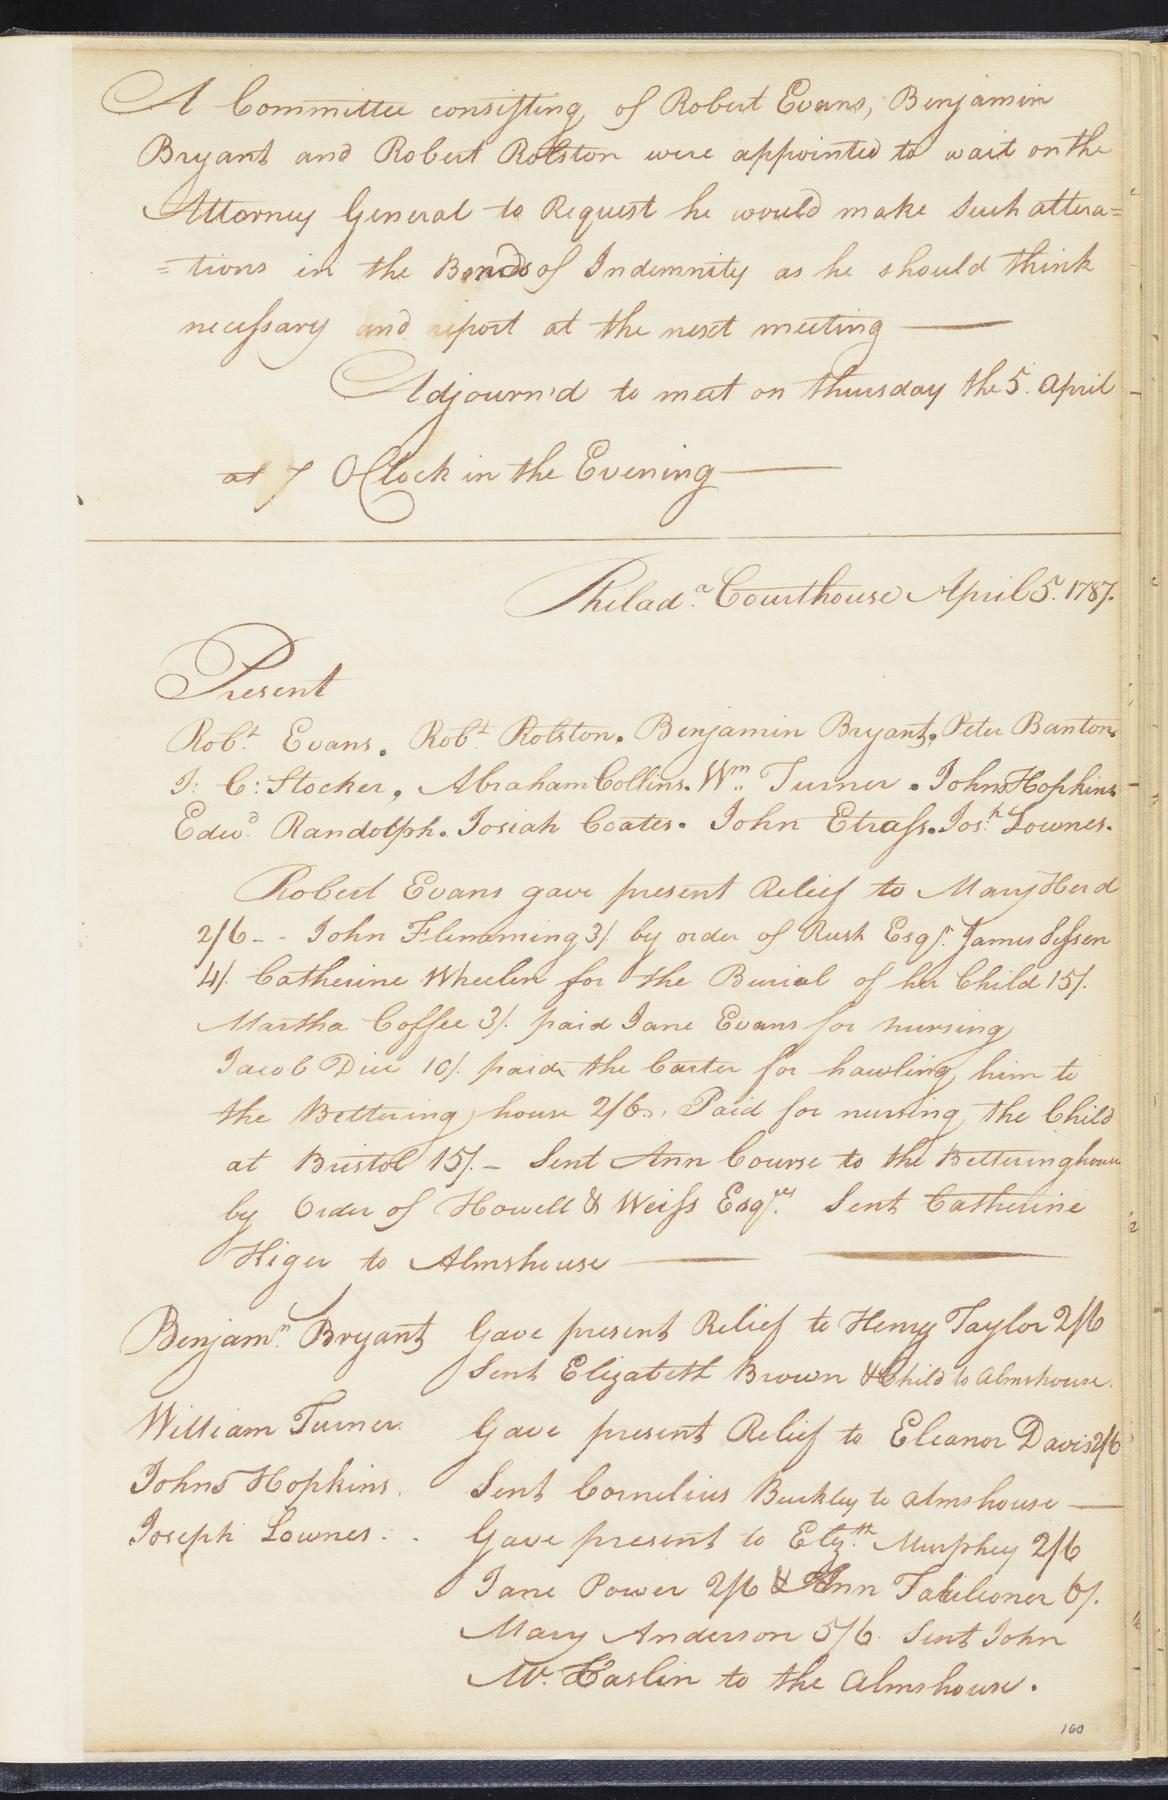 A Committee consisting of Robert Evans, Benjamin
Bryant and Robert Rolston were appointed to wait on the
Attorney General to Request he would make Such altera=
=tions in the Bonds of Indemnity as he should think
necessary and report at the next meeting
Adjourn'd to meet on thursday the 5. April
at 7 OClock in the Evening
Philad.a Courthouse April 5. 1787.
Present
Rob.t Evans. Rob.t Rolston. Benjamin Bryant, Peter Banton.
I: C: Stocker, Abraham Collins. Wm. Turner. Johns Hopkins
Edw.d Randolph. Josiah Coates. John Etrass. Jos.h Lownes.
Robert Evans gave present Relief to Mary Herd
2/6 - - John Flemming 3/. by order of Rush Esqr. James
4/. Catherine Wheelen for the Burial of her Child 15/.
Martha Coffee 3/. paid Jane Evans for nursing
Jacob 10/. paid the Carter for hawling him to
the Bettering house 2/6. Paid for nursing the Child
at Bristol 15/. - Sent Ann Course to the Betteringhouse
by Order of Howell & Weiss Esqrs. Sent Catherine
Higer to Almshouse
Benjam.n Bryant Gave present Relief to Henry Taylor 2/6
Sent Elizabeth Brown & Child to Almshouse.
William Turner. Gave present Relief to Eleanor Davis 2/6
Johns Hopkins. Sent Cornelius Buckley to almshouse
Joseph Lownes. . Gave present to Eliz.th Murphey 2/6
Jane Power 2/6 & Ann 6/.
Mary Anderson 5/6 Sent John
Mc. Caslin to the Almshouse.
160